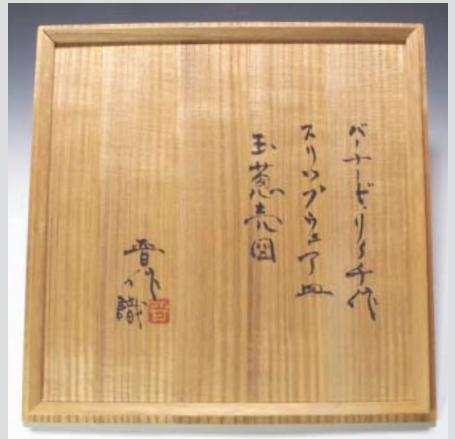 バーナード・リーチ作
スリップウェア皿
玉葱売図
晋作識
晋